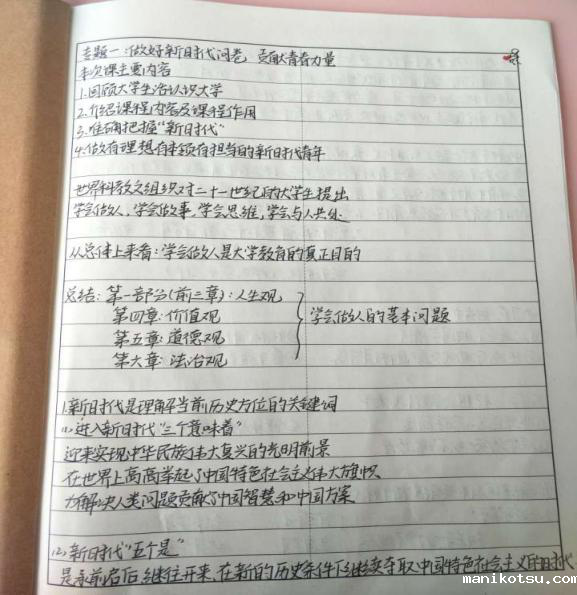 专题一:做好新时代问卷 贡献青春力量
本次课主要内容
1.回顾大学生活认识大学
2.介绍课程内容及课程作用
3.准确把握“新时代”
4.做有理想有本领有担当的新时代青年
世界科教文组织对二十一世纪的大学生提出
学会做人,学会做事,学会思维,学会与人共处
从总体上来看:学会做人是大学教育的真正目的
总结:第一部分(前三章):人生观
第四章:价值观
第五章:道德观
第六章:法治观
学会做人的基本问题
1.新时代是理解当前历史方位的关键词
(1)进入新时代“三个意味着”
迎来实现中华民族伟大复兴的光明前景
在世界上高高举起了中国特色社会主义伟大旗帜
为解决人类问题贡献了中国智慧和中国方案
(2)新时代“五个是”
是承前启后继往开来,在新的历史条件下继续夺取中国特色社会主义的时代
manikotsu.com